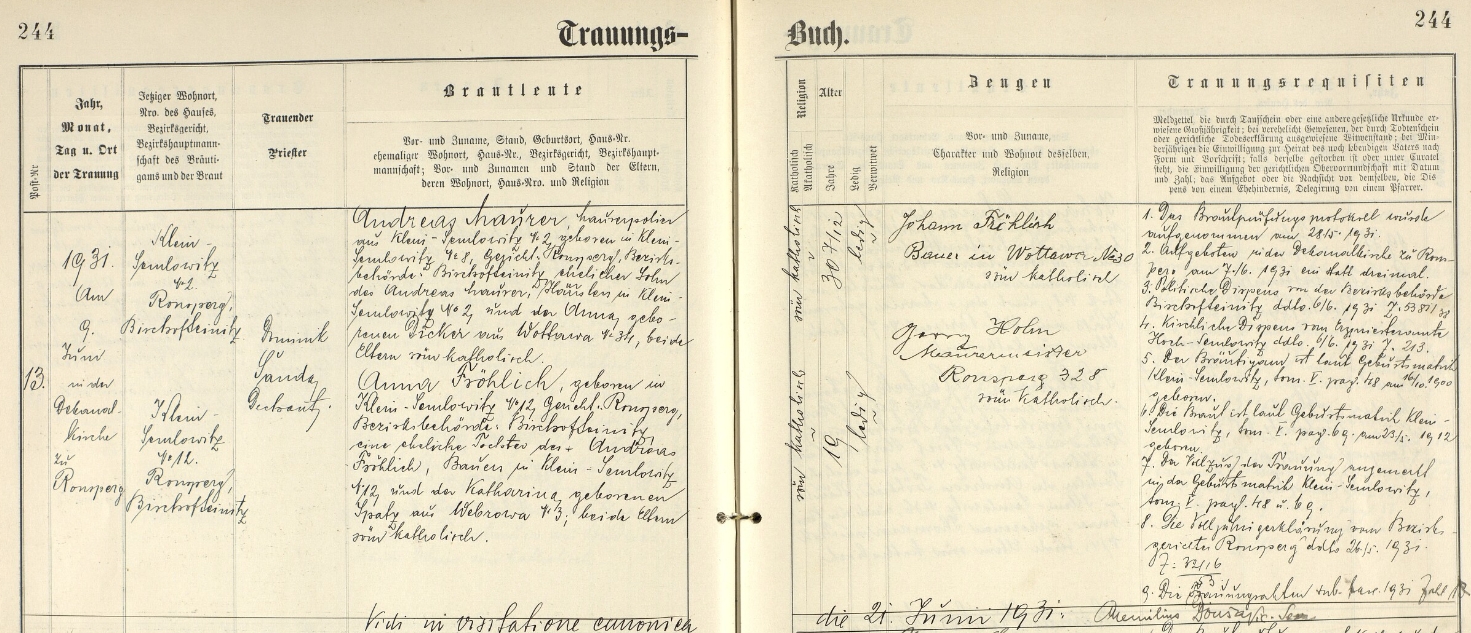 244
Trauungs-
Buch.
244
Post-Nr
Jahr,
Monat,
Tag u. Ort
der Trauung
Jetziger Wohnort,
Nro. des Hauses,
Bezirksgericht,
Bezirkshauptmann-
schaft des Bräuti-
gams und der Braut
Trauender
Priester
Brautleute
Vor- und Zuname, Stand, Geburtsort, Haus-Nr.
ehemaliger Wohnort, Haus-Nr., Bezirksgericht, Bezirkshaupt-
mannschaft; Vor- und Zunamen und Stand der Eltern,
deren Wohnort, Haus-Nro. und Religion
Religion
Katholisch
Akatholisch
Alter
Jahre
Ledig
Verwitwet
Zeugen
Vor- und Zuname,
Charakter und Wohnort desselben,
Religion
Trauungsrequisiten
Meldzettel, die durch Taufschein oder eine andere gesetzliche Urkunde er-
wiesene Großjährigkeit; bei verehelicht Gewesenen, der durch Todtenschein
oder gerichtliche Todeserklärung ausgewiesene Witwenstand; bei Min-
derjährigen die Einwilligung zur Heirat des noch lebendigen Vaters nach
Form und Vorschrift; falls derselbe gestorben ist oder unter Curatel
steht, die Einwilligung der gerichtlichen Obervormundschaft mit Datum
und Zahl; das Aufgebot oder die Nachsicht von demselben, die Dis
pens von einem Ehehindernis, Delegirung von einem Pfarrer.
13.
1931.
Am
9.
Juni
in der
Dekanal-
kirche
zu
Ronsperg
Klein-
Semlowitz
№ 2.
Ronsperg,
Bischofteinitz
Klein-
Semlowitz
№ 12.
Ronsperg,
Bischofteinitz
Dominik
Sanda,
Dechant.
Andreas Maurer, Maurerpolier
aus Klein-Semlowitz № 2, geboren in Klein-
Semlowitz № 8, Gericht: Ronsperg, Bezirks-
behörde: Bischofteinitz, ehelicher Sohn
des Andreas Maurer, Häusler in Klein-
Semlowitz № 2, und der Anna, gebo-
renen Dicker aus Wottawa № 34, beide
Eltern röm. katholisch.
Anna Fröhlich, geboren in
Klein-Semlowitz № 12, Gericht: Ronsperg,
Bezirksbehörde: Bischofteinitz,
eine eheliche Tochter des Andreas
Fröhlich, Bauer in Klein-Semlowitz
№ 12 und der Katharina, geborenen
Spatz aus Webrowa № 3, beide Eltern
röm. katholisch.
röm. katholisch
30 7/12
ledig
röm. katholisch
19
ledig
Johann Fröhlich
Bauer in Wottawa № 30
röm. katholisch
Georg Hohn
Maurermeister
Ronsperg 328
röm. katholisch.
1. Das Brautprüfungsprotokoll wurde
aufgenommen am 28/5. 1931.
2. Aufgeboten in der Dekanalkirche zu Rons-
perg am 7./6. 1931 ein statt dreimal.
3. Politische Dispens von der Bezirksbehörde
Bischofteinitz ddto. 6/6. 1931
4. Kirchliche Dispens vom Erzpriesteramte
Hoch-Semlowitz ddto. 6/6. 1931 Z. 213.
5. Der Bräutigam ist laut Geburtsmatrik
Klein-Semlowitz, tom. V. pag. 48 am 16/10. 1900
geboren.
6. Die Braut ist laut Geburtsmatrik Klein-
Semlowitz, tom. V. pag. 69. am 23/5. 1912
geboren.
7. Der Vollzug der Trauung angemerkt
in der Geburtsmatrik Klein-Semlowitz,
tom. V. pag. 48 u. 69.
8. Die Volljährigerklärung vom Bezirks-
gerichte Ronsperg ddto 26./5. 1931.
9. Die Trauungsakten sub. fasc. 1931 Zahl 13
Vidi in visitatione canonica
die 21. Junii 1931.